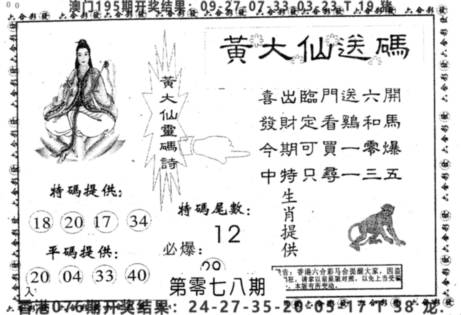 澳门195期开奖结果：09-27-07-33-03-23 T 19.猪
黃大仙送碼
黃大仙靈碼詩
喜出臨門送六開
發財定看鷄和馬
今期可買一零爆
中特只尋一三五
生肖提供
特碼提供：
18 20 17 34
平碼提供：
20 04 33 40
特碼尾數：
12
必爆：
第零七八期
香港076期开奖结果：24-27-35-20-05-17 T 38 龙.